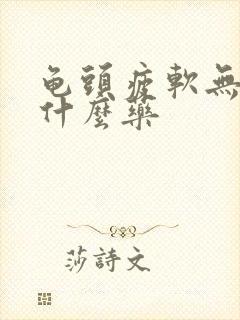 龟頭疲軟無
什麼藥
莎詩文